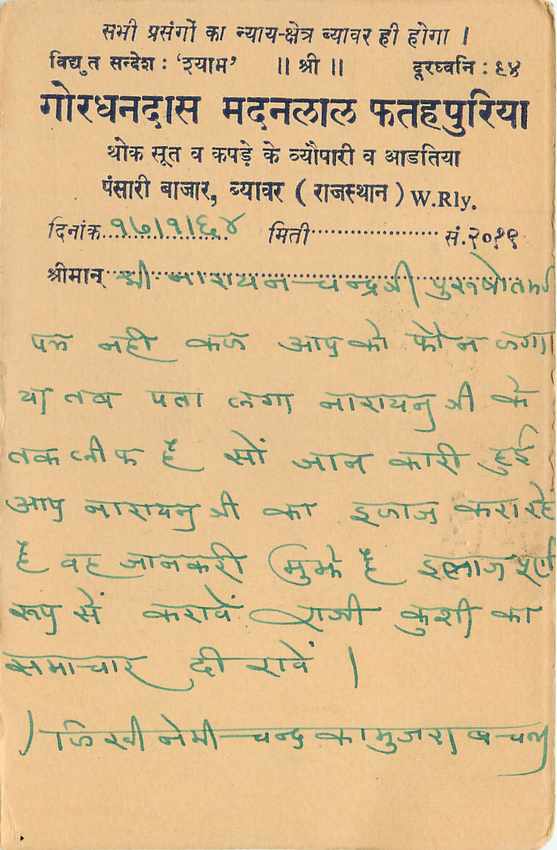 सभी प्रसंगों का न्याय-क्षेत्र ब्यावर ही होगा ।
विद्युत सन्देश : 'श्याम' ॥ श्री ॥ दूरध्वनि : ६४
गोरधनदास मदनलाल फतहपुरिया
थोक सूत व कपड़े के व्यौपारी व आडतिया
पंसारी बाजार, ब्यावर ( राजस्थान ) W.Rly.
दिनांक १७।१।६४ मिती सं. २०१९
श्रीमान् श्री नारायनचन्द्रजी पुरूषोतमजी
पत्र नही कल आपको फोन लगा
या तब पता लगा नारायनजी के
तकलीफ है सों जानकारी हुई
आप नारायनजी का इलाज करा रहे
है वह जानकरी मुझे है इलाज पूर्ण
रूप सें करावें राजी कुशी का
समाचार दीरावें ।
लिखी नेमीचन्द का मुजरा